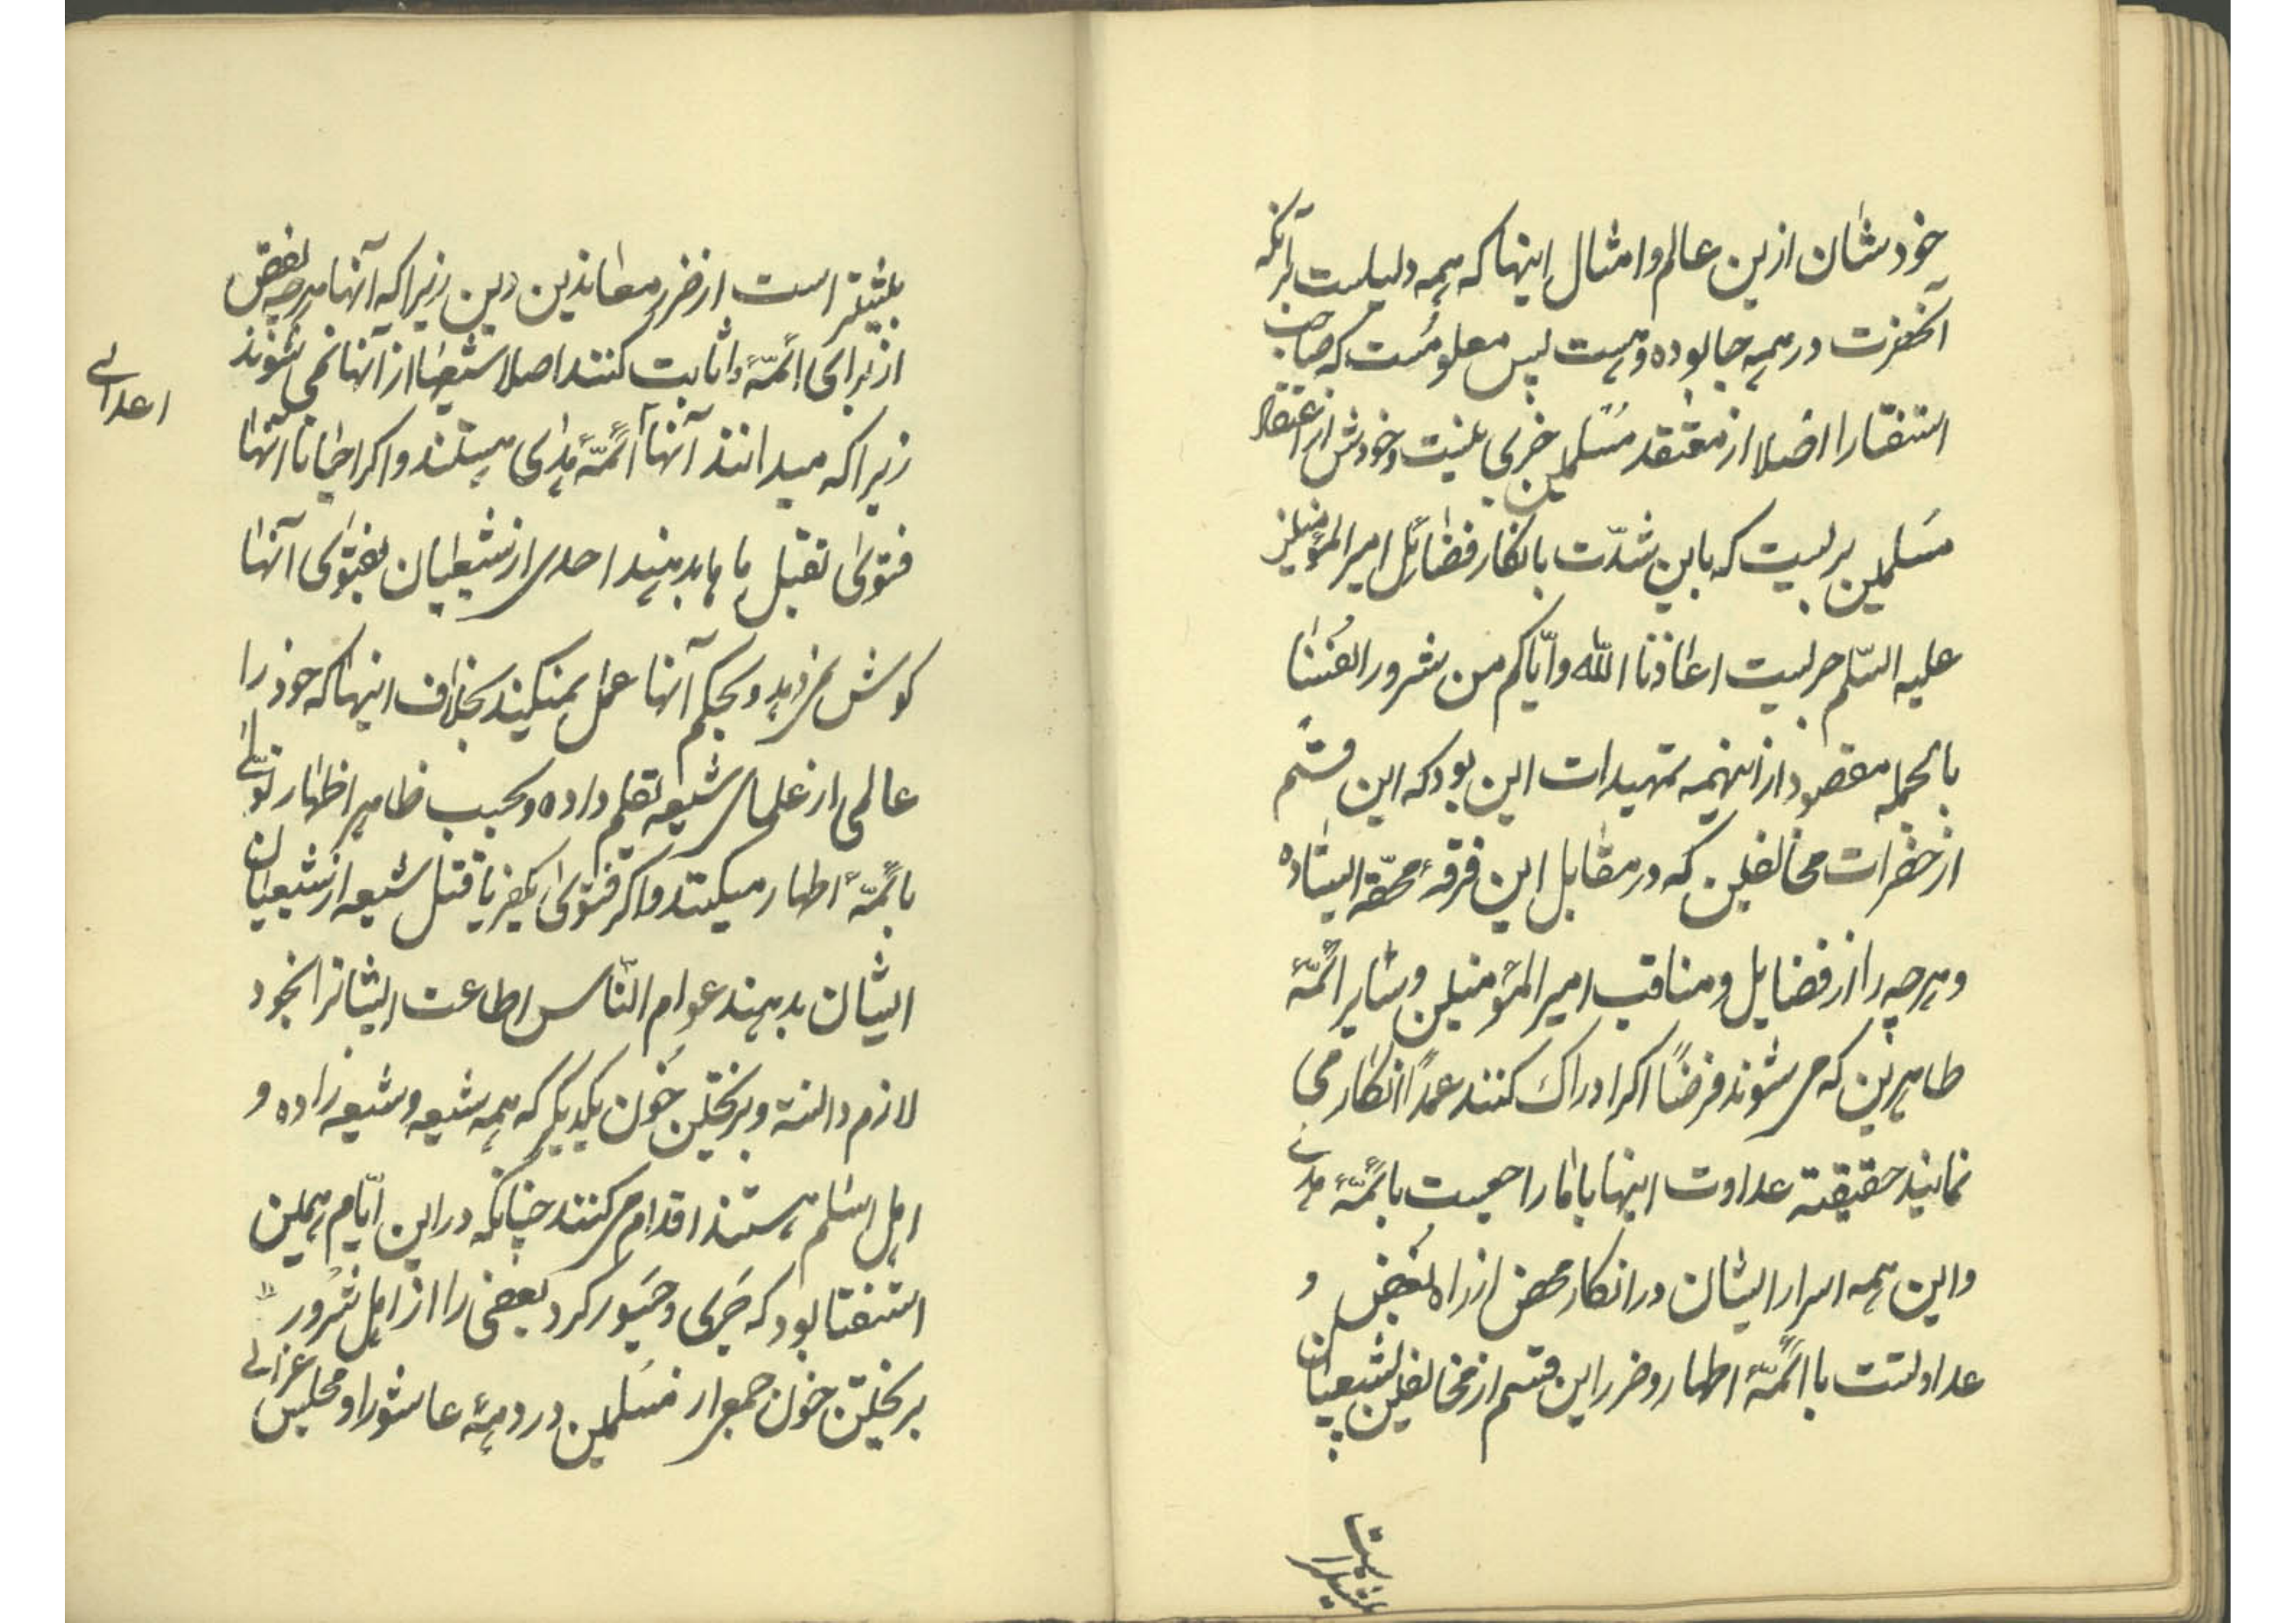 خودشان ازین عالم و امثال اینها که همه دلیلست برآنکه
آنحضرت در همه جا بوده و هست پس معلومست که صاحب
استفتا را اصلا از معتقد مسلمین خبری نیست و خودش از اعتقاد
مسلمین بریست که باین شدّت بانکار فضائل امیرالمؤمنین
علیه السّلم حریست اعاذنا الله وایّاکم من شرور انفسنا
بالجمله مقصود از اینهمه تمهیدات این بود که این قسم
از حضرات مخالفین که در مقابل این فرقهٔ محقّه ایستاده
و هرچه را از فضایل و مناقب امیرالمؤمنین و سایر ائمّهٔ
طاهرین که می شنوند فرضاً اگر ادراک کنند عمداً انکار می
نمایند حقیقة عداوت اینها باما راجعست بائمّهٔ هدی
و این همه اسرار ایشان در انکار محض از راه بغض و
عداوتست با ائمّهٔ اطهار و ضرر این قسم از مخالفین بشیعیان
بیشتر است
بیشتر است از ضرر معاندین دین زیرا که آنها هرچه بغض
از برای ائمّه ثابت کنند اصلا شیعیا از آنها نمی شنوند
زیرا که میدانند آنها ائمّهٔ هدی هستند و اگر احیانا آنها
اعدای
فتوی بقتل ماها بدهند احدی از شیعیان بفتوی آنها
گوش نمیدهد و بحکم آنها عمل نمیکند بخلاف اینها که خود را
عالمی از علمای شیعه بقلم داده و بحسب ظاهر اظهار تولّی
بائمّهٔ اطهار میکنند و اگر فتوی بکفر یا قتل شیعه از شیعیان
ایشان بدهند عوام النّاس اطاعت ایشانرا بخود
لازم دانسته و بریختن خون یکدیگر که همه شیعه و شیعه زاده و
اهل اسلم هستند اقدام میکنند چنانکه در این ایّام همین
استفتا بود که جری و جسور کرد بعضی را از اهل شرور
بریختن خون جمعی از مسلمین در دههٔ عاشورا و مجلس عزای